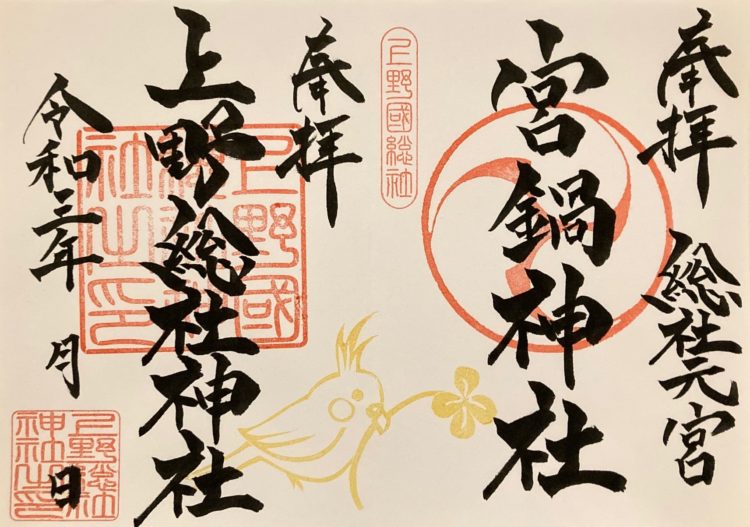 奉拝
総社元宮
宮鍋神社
上野國総社
奉拝
上野総社神社
上野國
社之印
令和三年 月 日
上野総社
神社之印